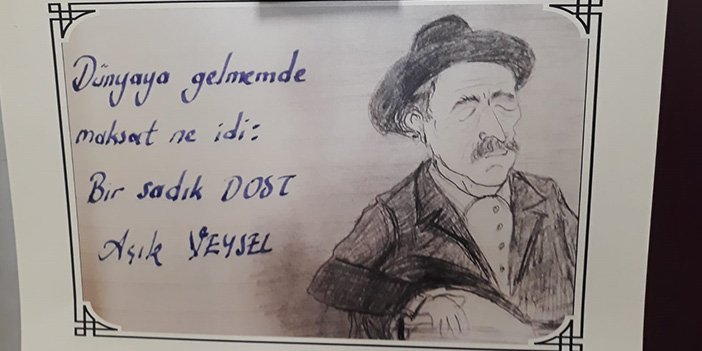 Dünyaya gelmemde
maksat ne idi:
Bir sadık DOST
Aşık VEYSEL